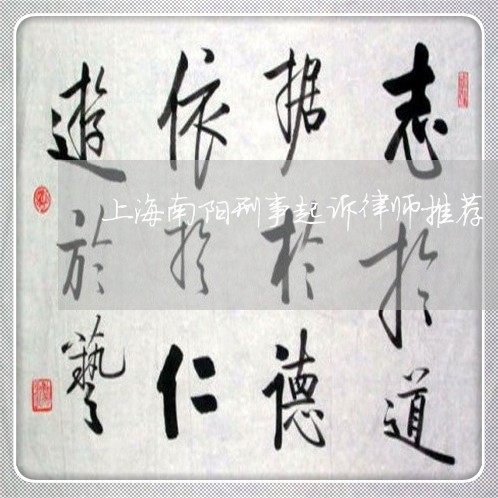 志於道
据於德
依於仁
遊於藝
上海南阳刑事起诉律师推荐